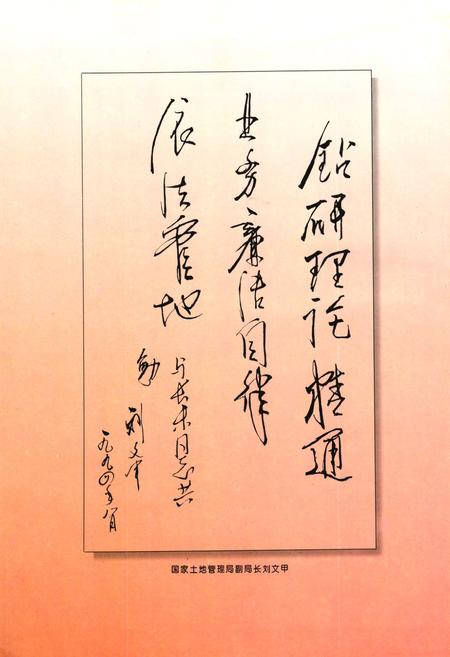 钻研理论精通
业务廉洁自律
依法管地
与长末同志共
勉
刘文甲
一九九四年八月
国家土地管理局副局长刘文甲